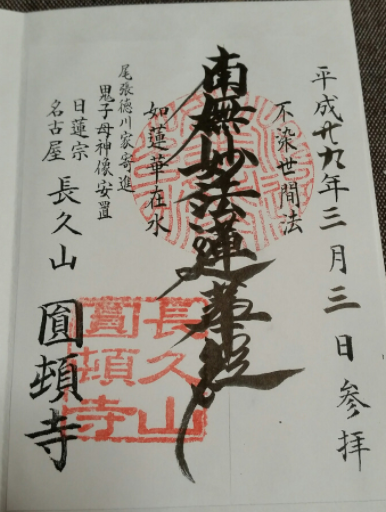 平成廿九年三月三日参拝
不染世間法
南無妙法蓮華経
如蓮華在水
尾張徳川家寄進
鬼子母神像安置
日蓮宗
名古屋 長久山
圓頓寺
長久山
圓頓寺